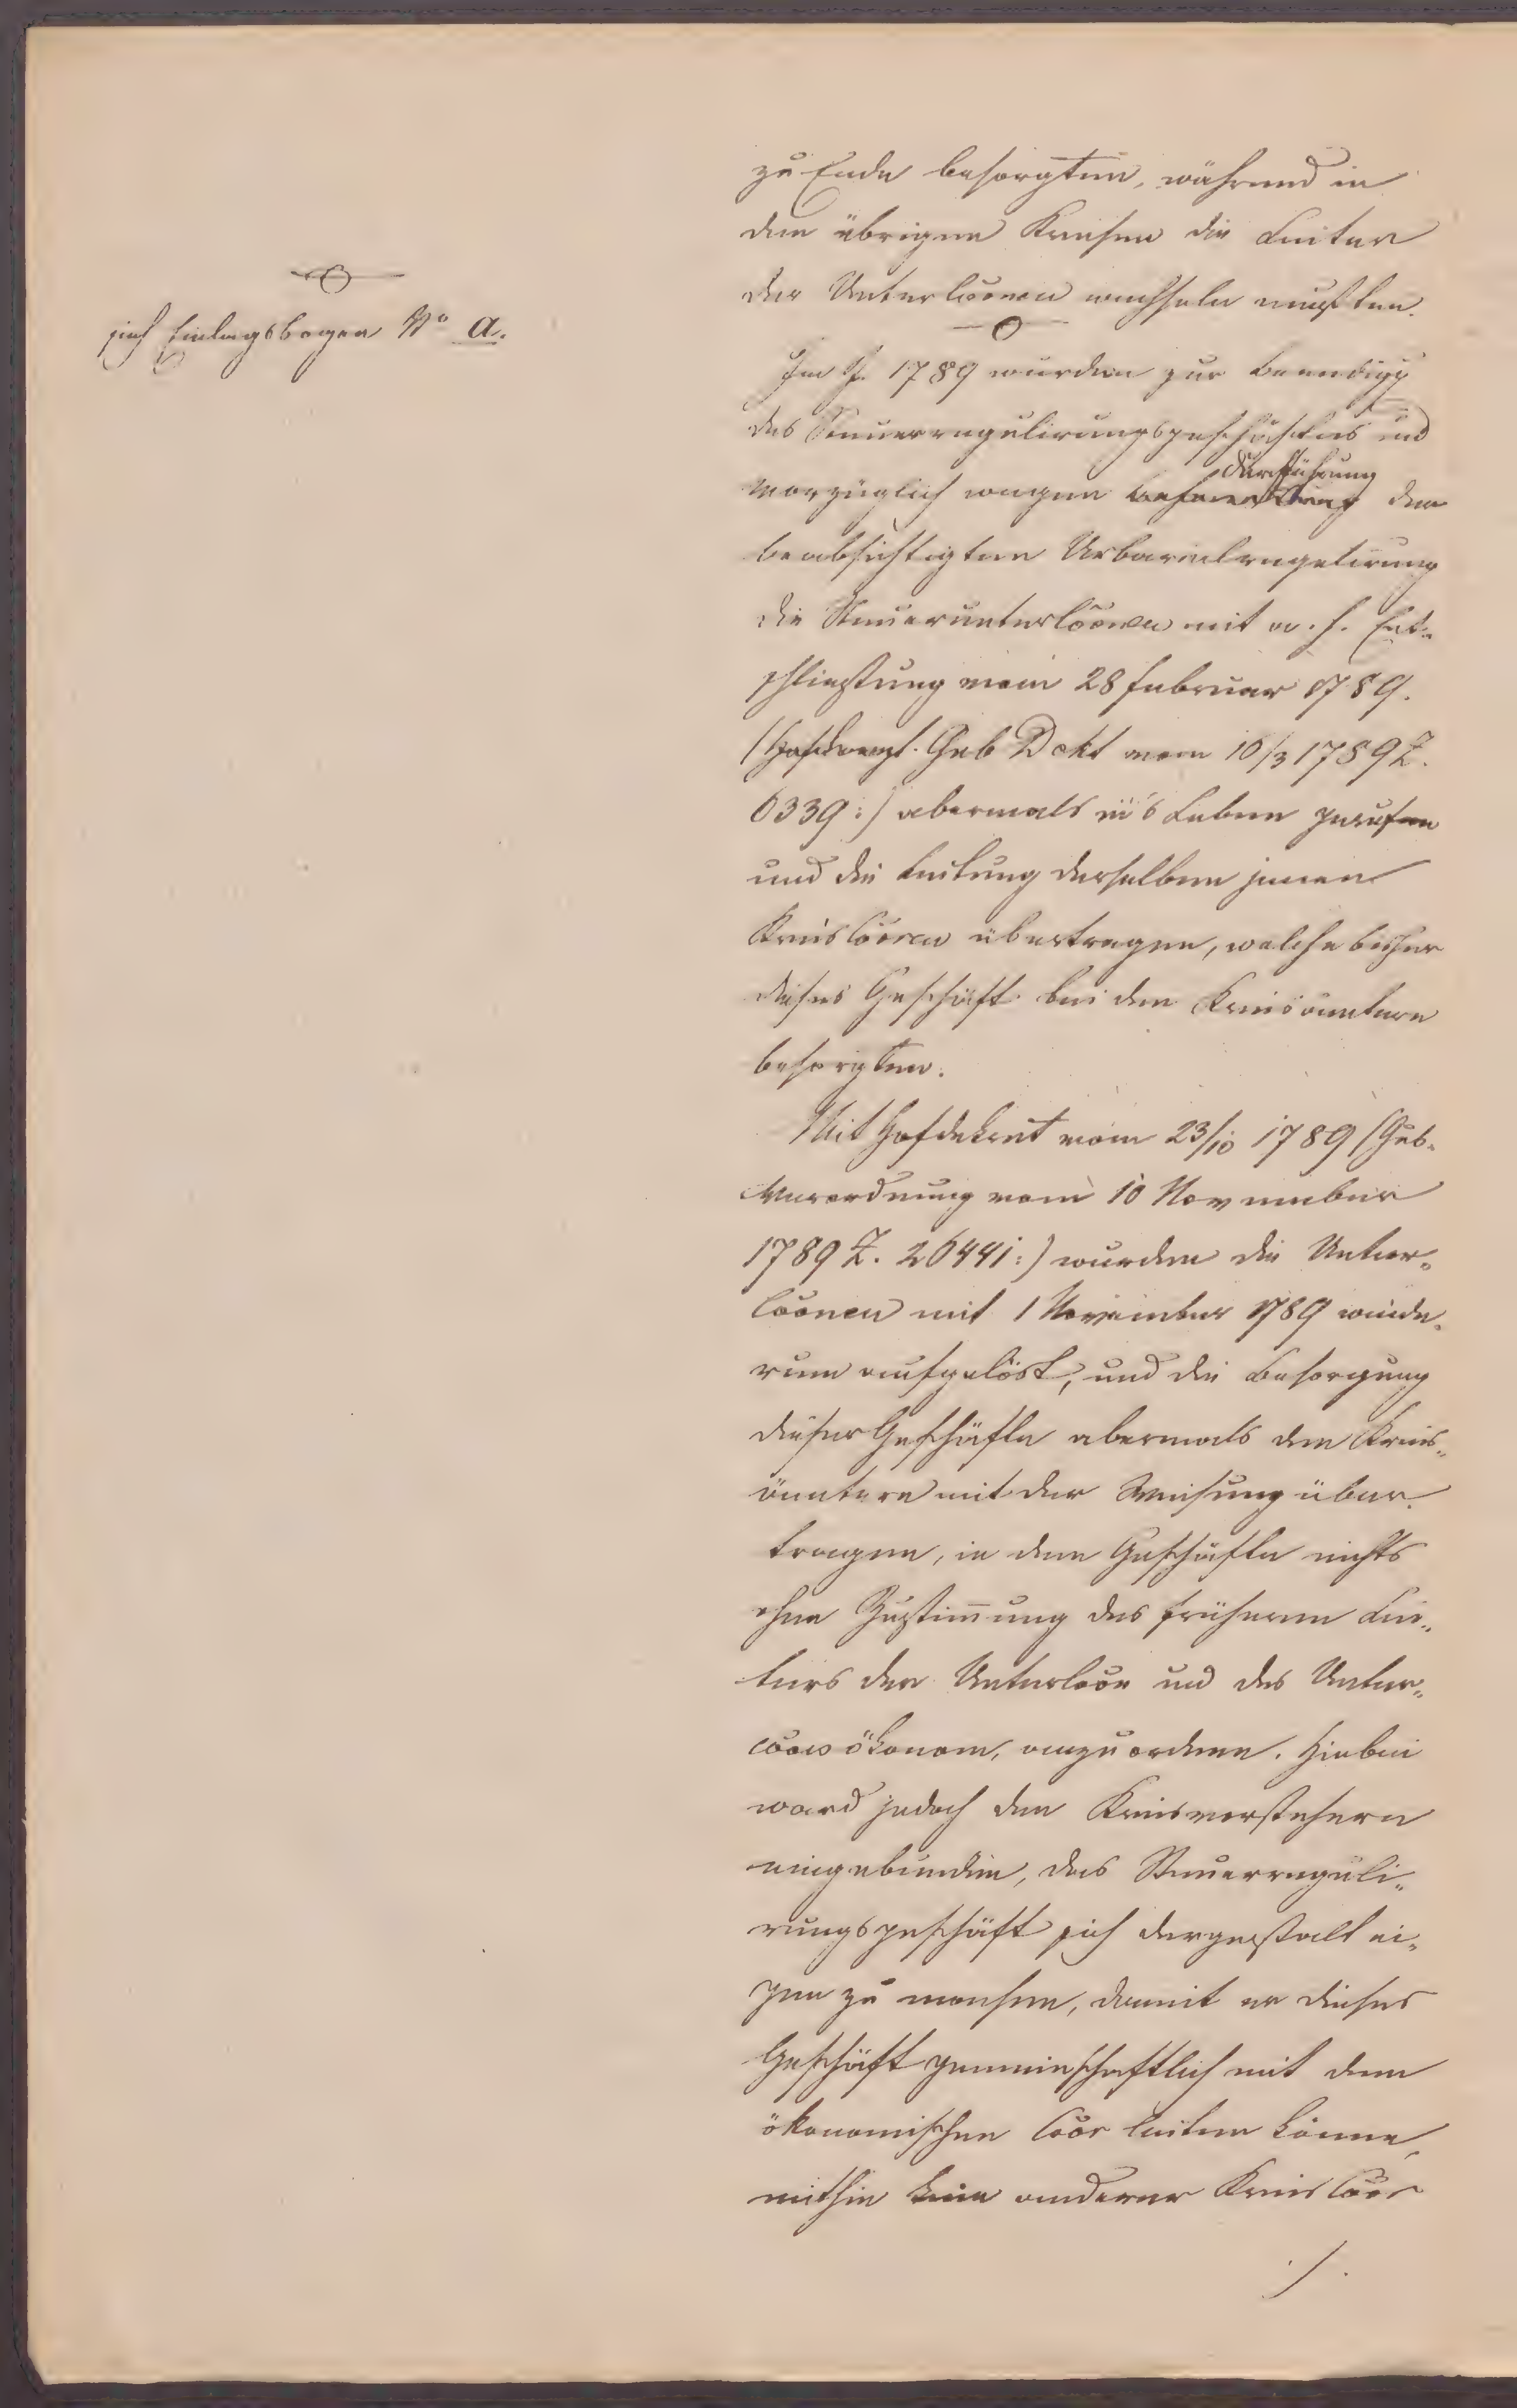 sieh Einlagsbogen No a.
zu Ende besorgten, während in
den übrigen Kreisen die Leiter
der Untercoonen wechseln mußten.
Im J. 1789 wurden zur Beendigg
des Steuerregulirungsgeschäftes und
vorzüglich wegen Durchführung der
beabsichtigten Urbarialregulirung
die Steueruntercoonen mit a. h. Ent-
schließung vom 28 Februar 1789.
(Hofkanzl. Gub Dekt vom 10/3 1789 Z.
6339:) abermals in's Leben gerufen
und die Leitung derselben jenen
Kreiscooren übertragen, welche bisher
dieses Geschäft bei den Kreisämtern
besorgten.
Mit Hofdekret vom 23/10 1789 (Gub-
Verordnung vom 10 November
1789 Z. 26441:) wurden die Unter-
coonen mit 1 November 1789 wiede-
rum aufgelöst, und die Besorgung
dieser Geschäfte abermals den Kreis-
ämtern mit der Weisung über-
tragen, in dem Geschäfte nichts
ohne Zustimmung des früheren Lei-
ters der Untercoon und des Unter-
coons ökonom, anzuordnen. Hiebei
ward jedoch den Kreisvorstehern
eingebunden, das Steuerreguli-
rungsgeschäft sich dergestalt ei-
gen zu machen, damit er dieses
Geschäft gemeinschaftlich mit dem
ökonomischen Cöör leiten könne,
mithin kein anderer Kreis Cöör
./.